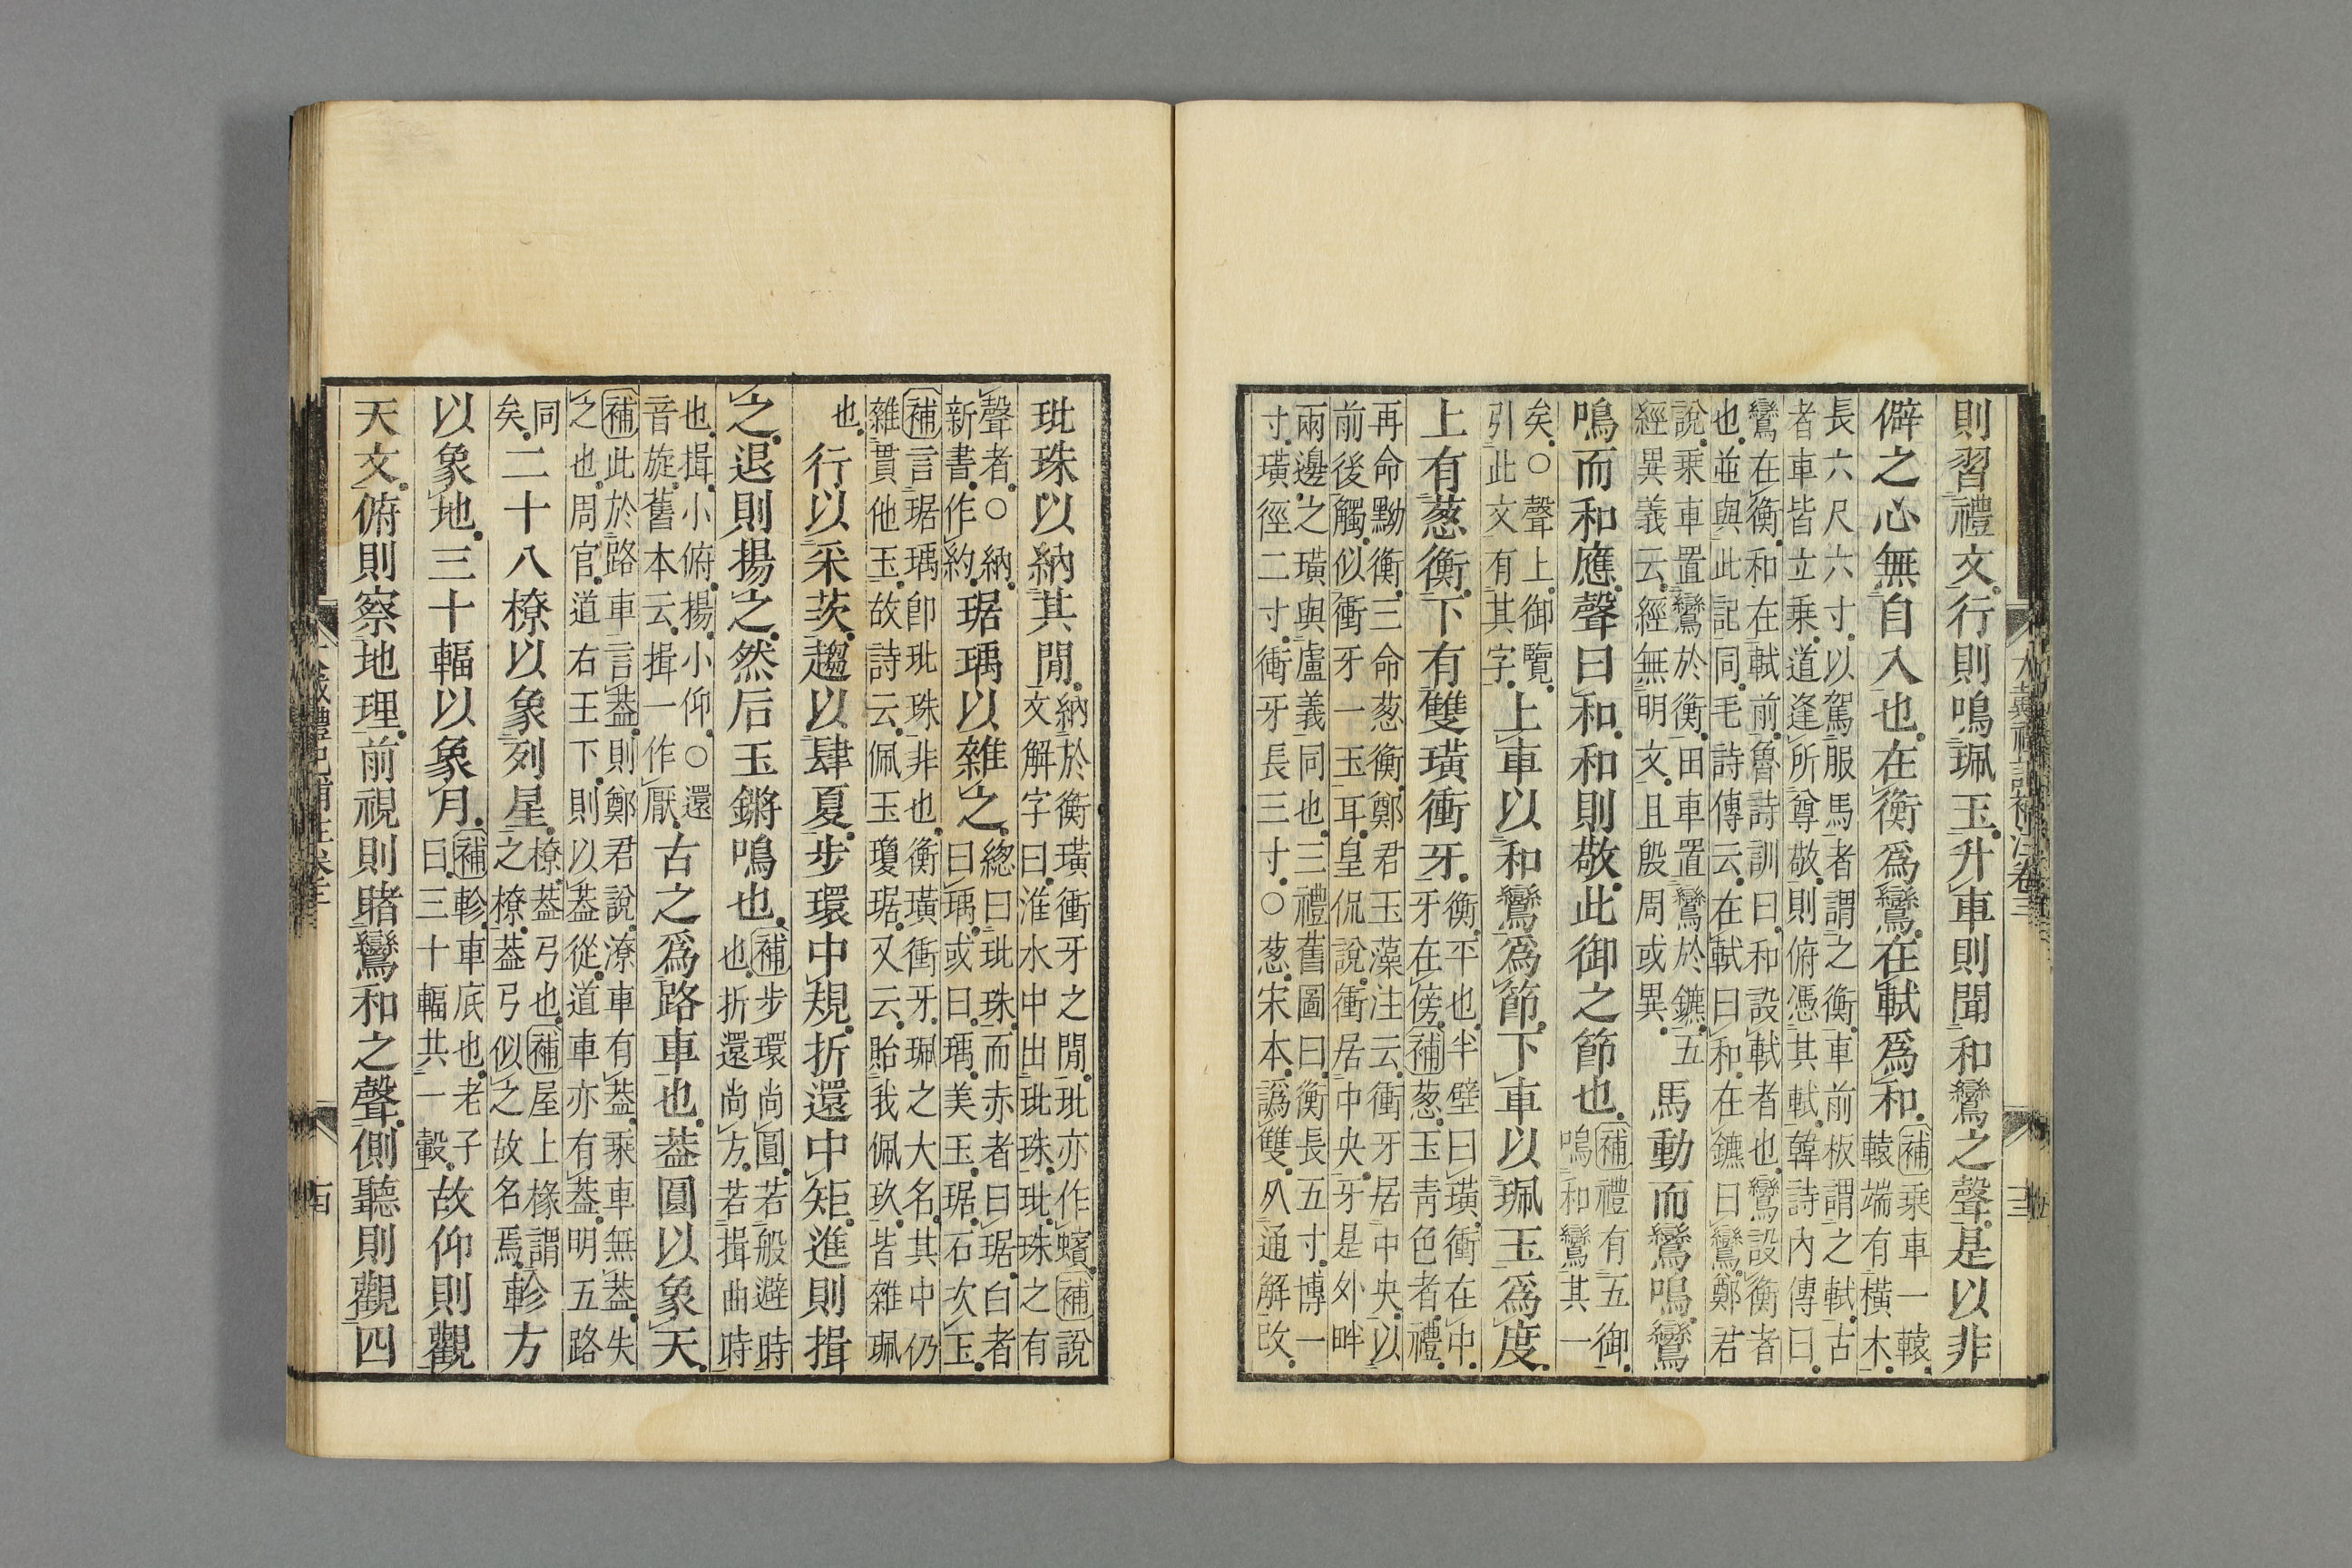 則習禮文行則鳴珮玉升車則聞和鸞之聲是以非
僻之心無自入也在衡爲鸞在軾爲和補乘車一轅
轅端有橫木
長六尺六寸以駕服馬者謂之衡車前板謂之軾古
者車皆立乘道逢所尊敬則俯憑其軾韓詩內傳曰
鸞在衡和在軾前魯詩訓曰和設軾者也鸞設衡者
也並與此記同毛詩傳云在軾曰和在鑣曰鸞鄭君
說乘車置鸞於衡田車置鸞於鑣五
經異義云經無明文且殷周或異
馬動而鸞鳴鸞
鳴而和應聲曰和和則敬此御之節也補禮有五御
鳴和鸞其一
矣○聲上御覽
引此文有其字
上車以和鸞爲節下車以珮玉爲度
上有葱衡下有雙璜衝牙衡平也半璧曰璜衝在中
牙在傍補葱玉靑色者禮
再命黝衡三命葱衡鄭君玉藻注云衝牙居中央以
前後觸似衝牙一玉耳皇侃說衝居中央牙是外畔
兩邊之璜與盧義同也三禮舊圖曰衡長五寸博一
寸璜徑二寸衝牙長三寸○葱宋本譌雙从通解改
玭珠以納其閒納於衡璜衝牙之閒玭亦作蠙補說
文解字曰淮水中出玭珠玭珠之有
聲者○納
新書作約
琚瑀以雜之總曰玭珠而赤者曰琚白者
曰瑀或曰瑀美玉琚石次玉
補言琚瑀卽玭珠非也衡璜衝牙珮之大名其中仍
雜貫他玉故詩云佩玉瓊琚又云貽我佩玖皆雜珮
也
行以采茨趨以肆夏步環中規折還中矩進則揖
之退則揚之然后玉鏘鳴也補步環尚圓若般避時
也折還尚方若揖曲時
也揖小俯揚小仰○還
音旋舊本云揖一作厭
古之爲路車也葢圓以象天
補此於路車言葢則鄭君說潦車有葢乘車無葢失
之也周官道右王下則以葢從道車亦有葢明五路
同
矣
二十八橑以象列星橑葢弓也補屋上椽謂
之橑葢弓似之故名焉
軫方
以象地三十輻以象月補軫車底也老子
曰三十輻共一轂
故仰則觀
天文俯則察地理前視則睹鸞和之聲側聽則觀四